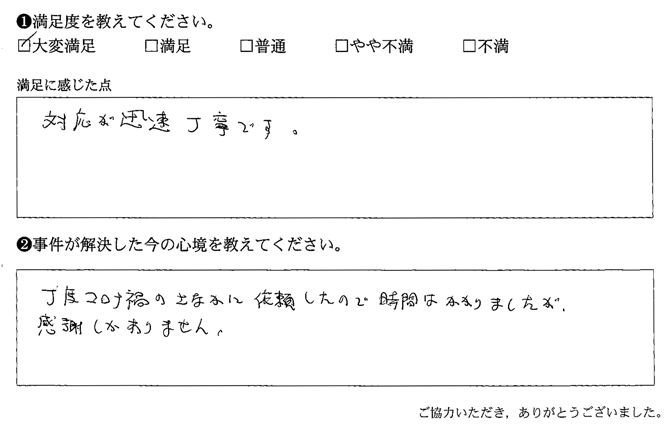 ❶満足度を教えてください。
☑大変満足 □満足 □普通 □やや不満 □不満
満足に感じた点
対応が迅速丁寧です。
❷事件が解決した今の心境を教えてください。
丁度コロナ禍の止なかに依頼したので時間はかかりましたが、
感謝しかありません。
ご協力いただき，ありがとうございました。